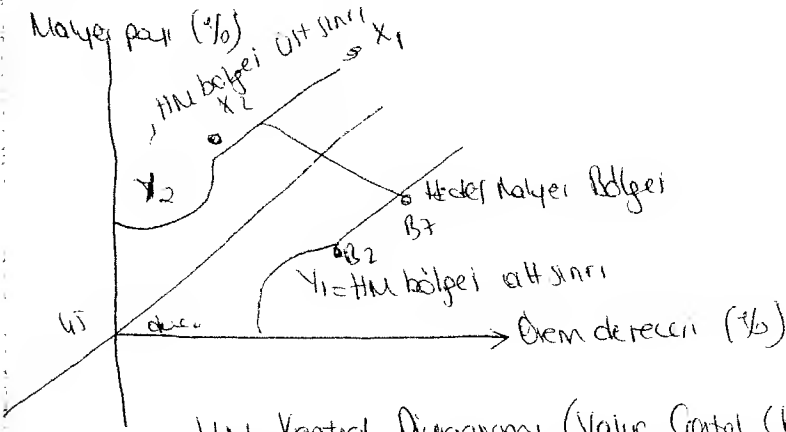 Maliyet payı (%)
HM bölgei üst sınrı
X1
X2
Y2
Hedef Maliyet Bölgei
B7
B2
Y1 = HM bölgei alt sınrı
45
Önem derecesi (%)
Kontrol Diyagramı (Value Control